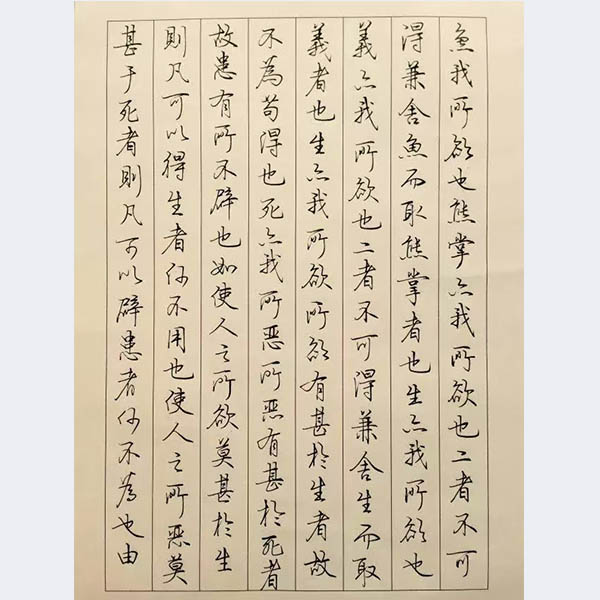 魚我所欲也熊掌亦我所欲也二者不可
得兼舍魚而取熊掌者也生亦我所欲也
義亦我所欲也二者不可得兼舍生而取
義者也生亦我所欲所欲有甚於生者故
不為苟得也死亦我所恶所恶有甚於死者
故患有所不辟也如使人之所欲莫甚於生
則凡可以得生者何不用也使人之所恶莫
甚于死者則凡可以辟患者何不為也由